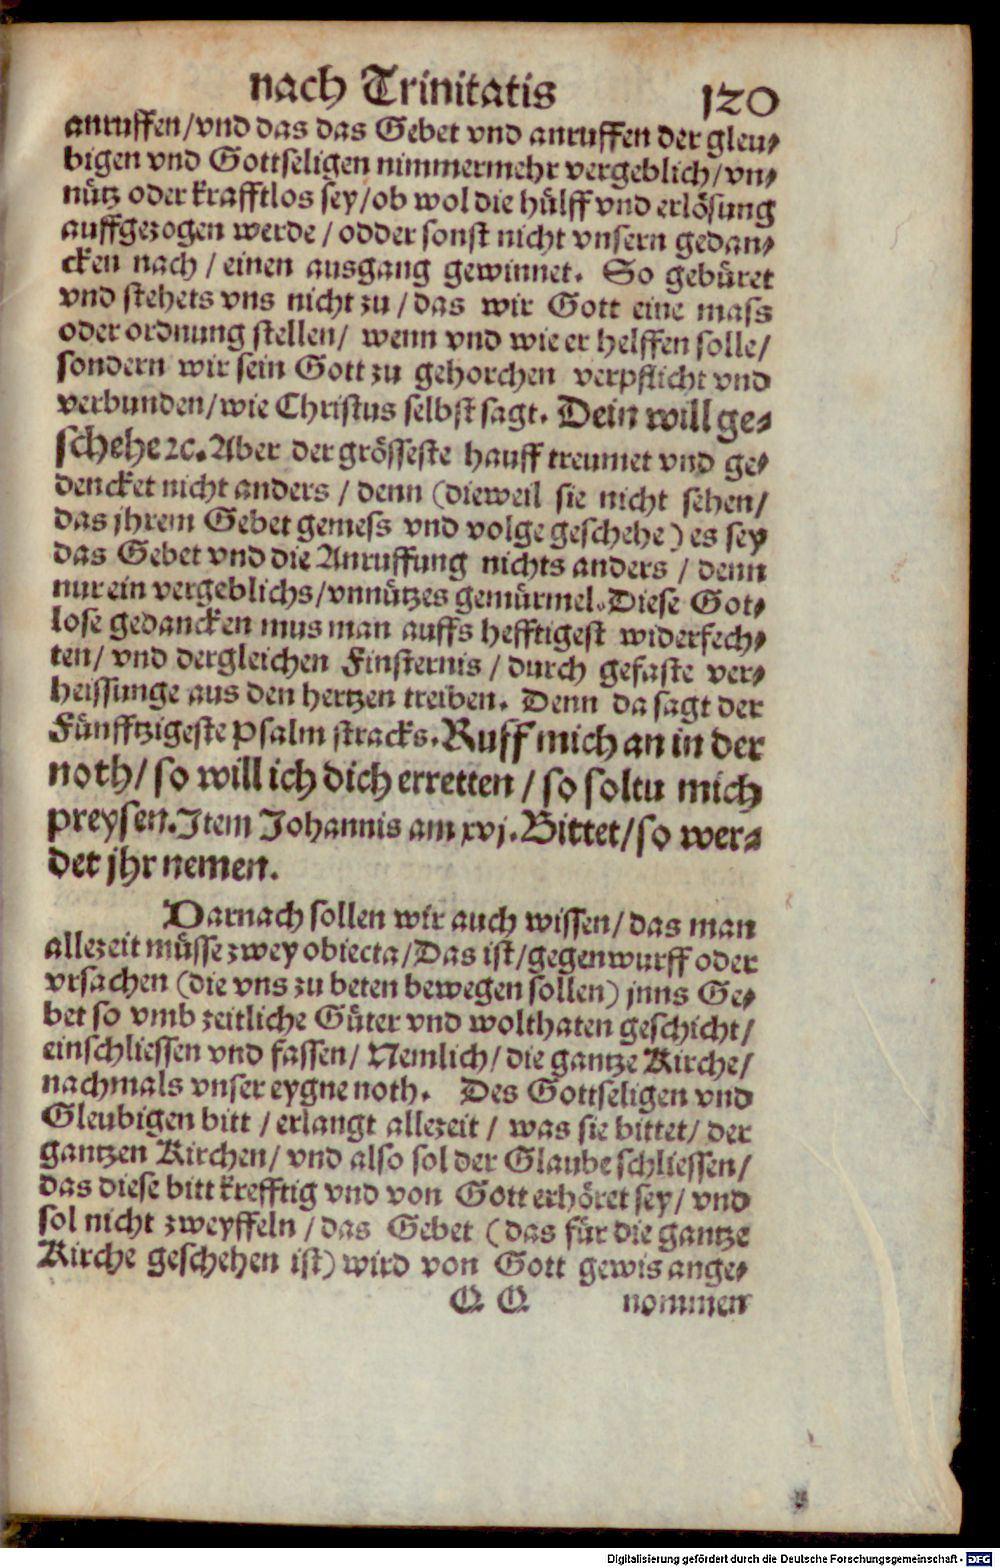 nach Trinitatis 120
anruffen/vnd das das Gebet vnd anruffen der gleu-
bigen vnd Gottseligen nimmermehr vergeblich/vn-
nütz oder krafftlos sey/ob wol die hülff vnd erlösung
auffgezogen werde/odder sonst nicht vnsern gedan-
cken nach/einen ausgang gewinnet. So gebüret
vnd stehets vns nicht zu/das wir Gott eine mass
oder ordnung stellen/ wenn vnd wie er helffen solle/
sondern wir sein Gott zu gehorchen verpflicht vnd
verbunden/wie Christus selbst sagt. Dein will ge-
schehe ꝛc. Aber der grösseste hauff treumet vnd ge-
dencket nicht anders/denn (dieweil sie nicht sehen/
das jhrem Gebet gemess vnd volge geschehe) es sey
das Gebet vnd die Anruffung nichts anders/denn
nur ein vergeblichs/vnnützes gemürmel. Diese Got-
lose gedancken mus man auffs hefftigest widerfech-
ten/vnd dergleichen Finsternis/durch gefaste ver-
heissunge aus den hertzen treiben. Denn da sagt der
Fünfftzigeste Psalm stracks. Ruff mich an in der
noth/so will ich dich erretten/so soltu mich
preysen. Item Johannis am xvj. Bittet/so wer-
det jhr nemen.
Darnach sollen wir auch wissen/das man
allezeit müsse zwey obiecta/Das ist/gegenwurff oder
vrsachen (die vns zu beten bewegen sollen) jnns Ge-
bet so vmb zeitliche Güter vnd wolthaten geschicht/
einschliessen vnd fassen/Nemlich/die gantze Kirche/
nachmals vnser eygne noth. Des Gottseligen vnd
Gleubigen bitt/erlangt allezeit/was sie bittet/der
gantzen Kirchen/vnd also sol der Glaube schliessen/
das diese bitt krefftig vnd von Gott erhöret sey/vnd
sol nicht zweyffeln/das Gebet (das für die gantze
Kirche geschehen ist) wird von Gott gewis ange-
Q Q nommen
Digitalisierung gefördert durch die Deutsche Forschungsgemeinschaft - DFG